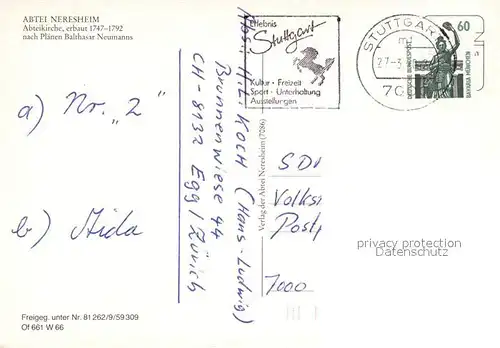 ABTEI NERESHEIM
Abteikirche, erbaut 1747-1792
nach Plänen Balthasar Neumanns
Erlebnis
Stuttgart
Kultur · Freizeit
Sport · Unterhaltung
Ausstellungen
STUTTGAR
md
27-3
70
60
DEUTSCHE BUNDESPOST
BAVARIA MÜNCHEN
a) Nr. "2"
b) Aida
Abs.: H.L. KOCH (Hans-Ludwig)
Brunnenwiese 44
CH-8132 Egg/Zürich
Verlag der Abtei Neresheim (7086)
SDr
Volks
Postf
7000
privacy protection
Datenschutz
Freigeg. unter Nr. 81 262/9/59 309
Of 661 W 66